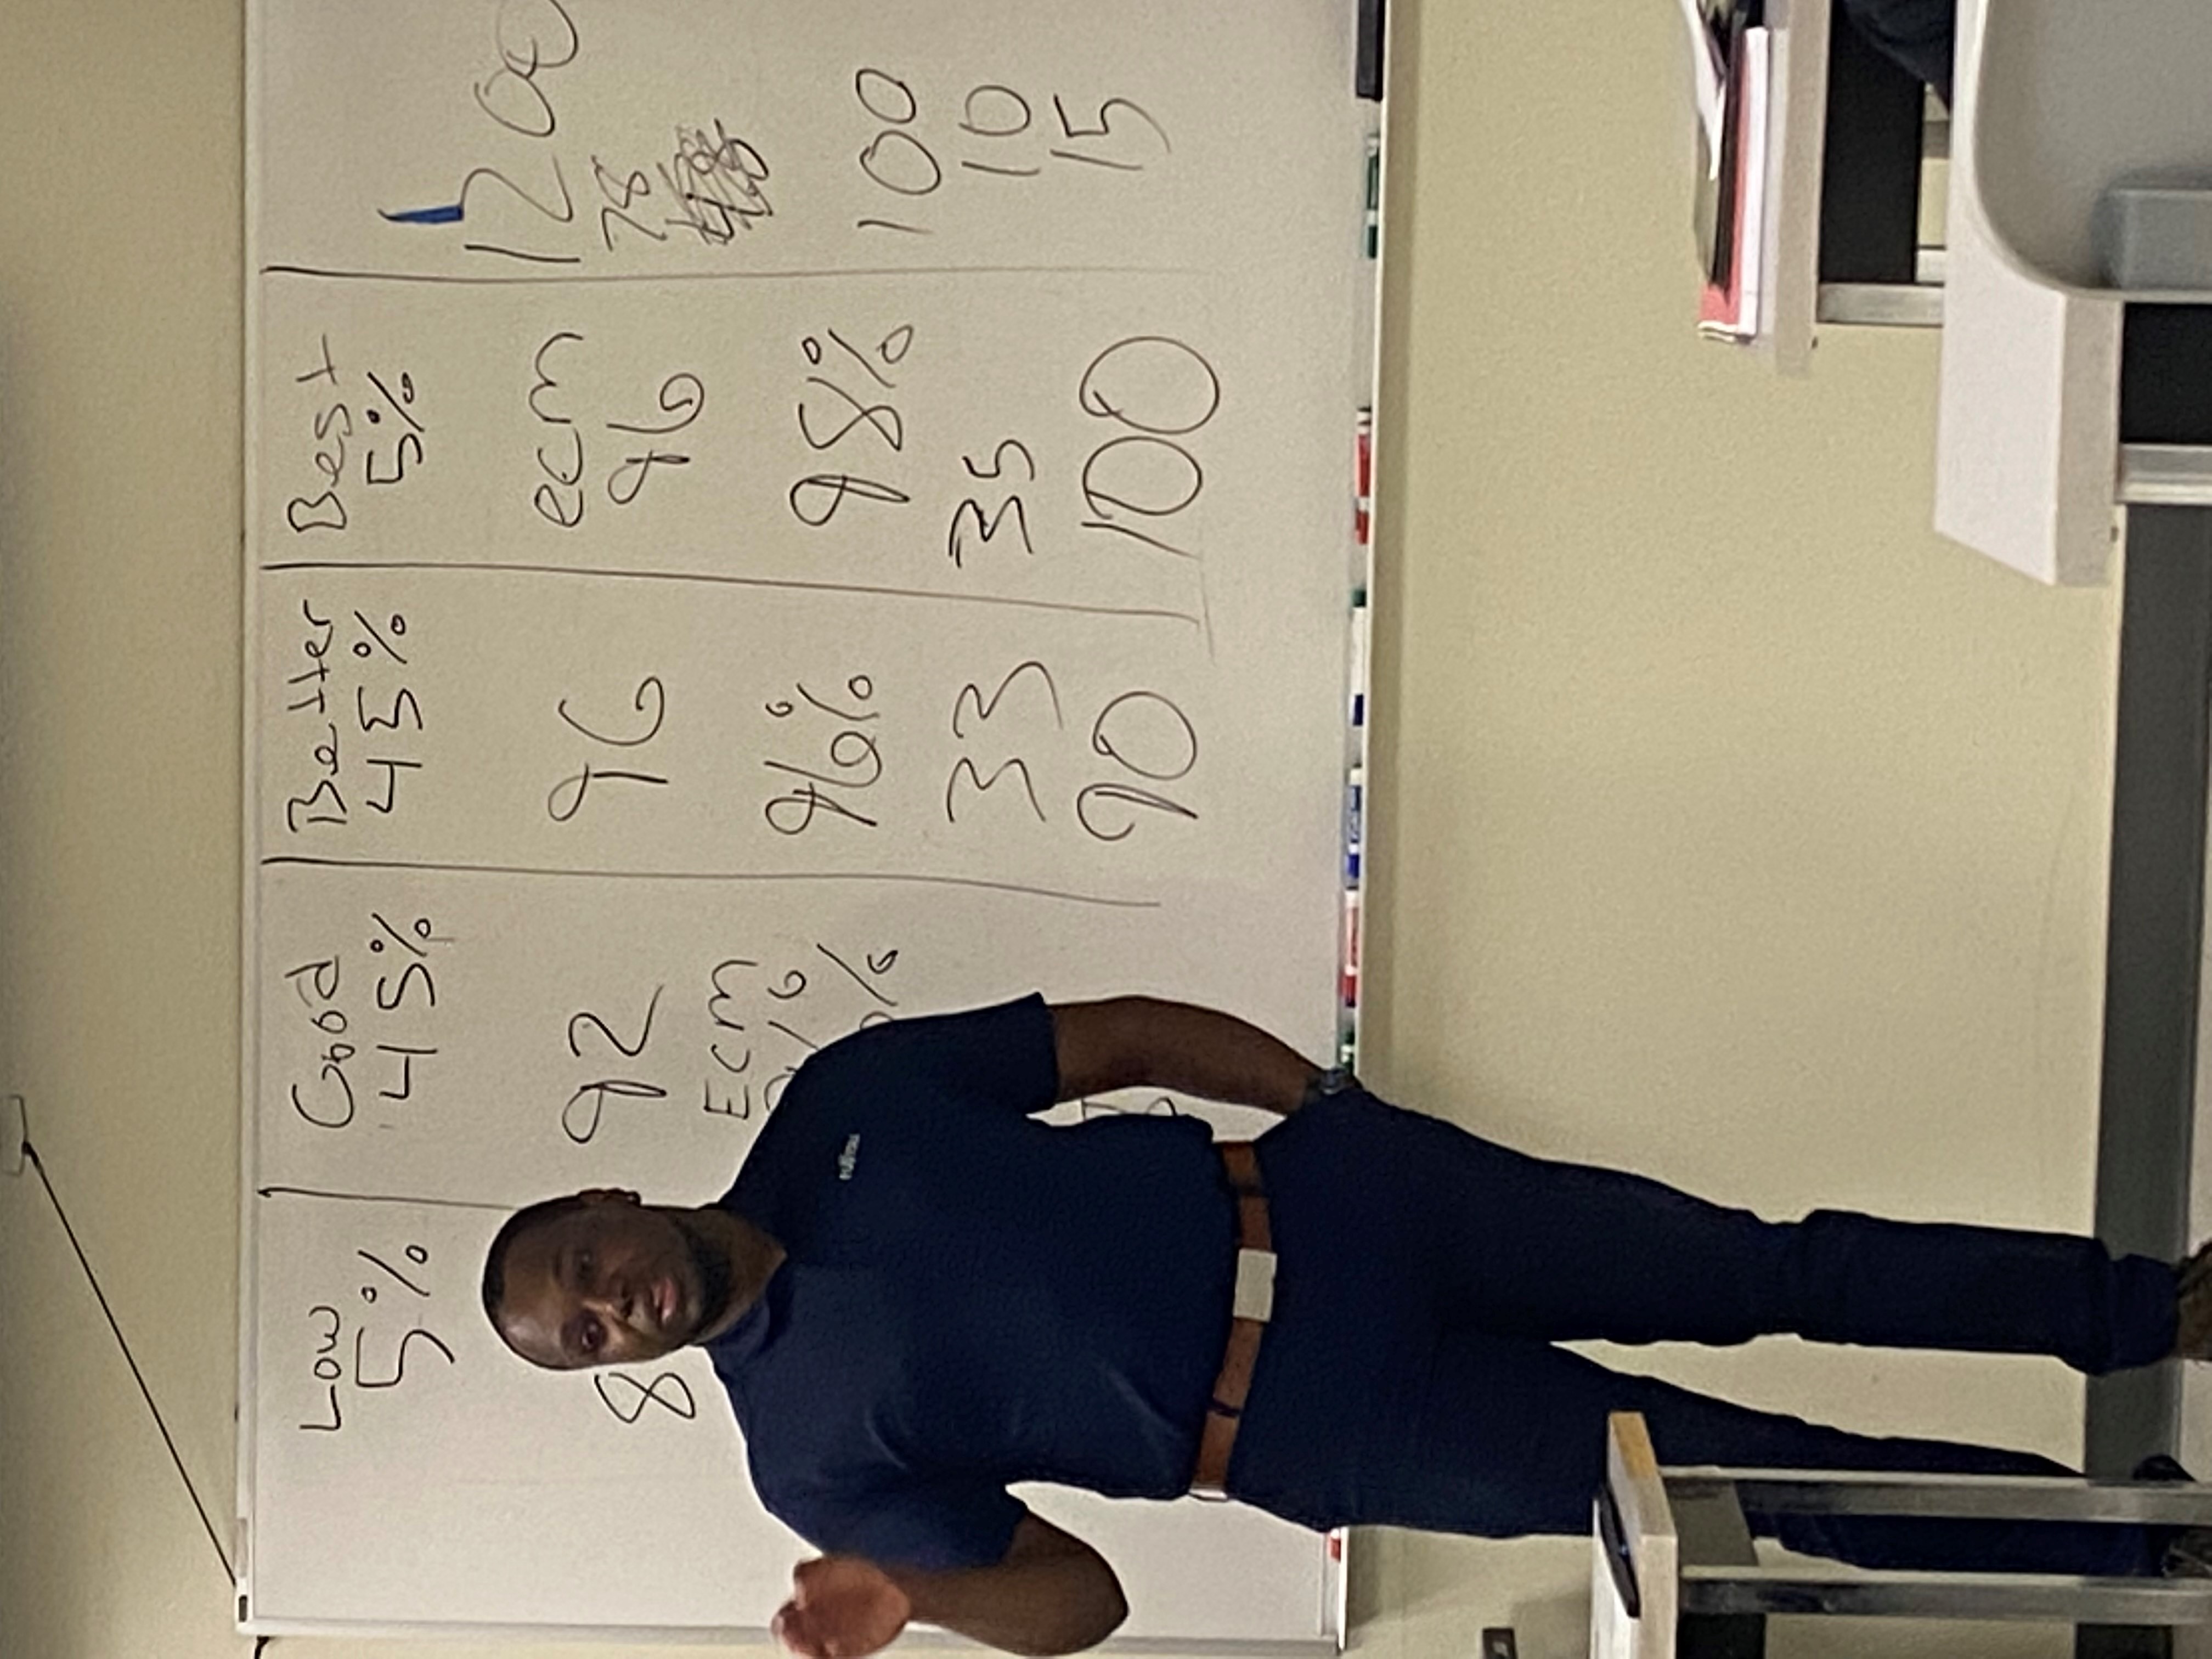 Low Good Better Best
5% 45% 45% 5%
1200
8 92 96 ecm 78
96
Ecm
96% 98% 100
33 35 10
90 100 15
FUJITSU